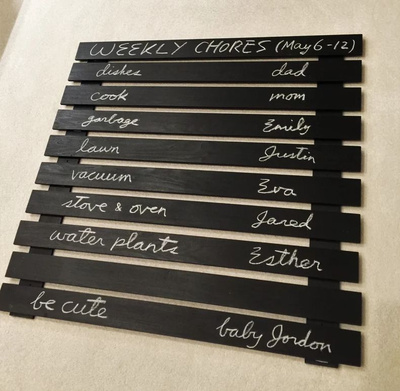 WEEKLY CHORES (May 6-12)
dishes dad
cook mom
garbage Emily
lawn Justin
vacuum Eva
stove & oven Jared
water plants Esther
be cute baby Jordon